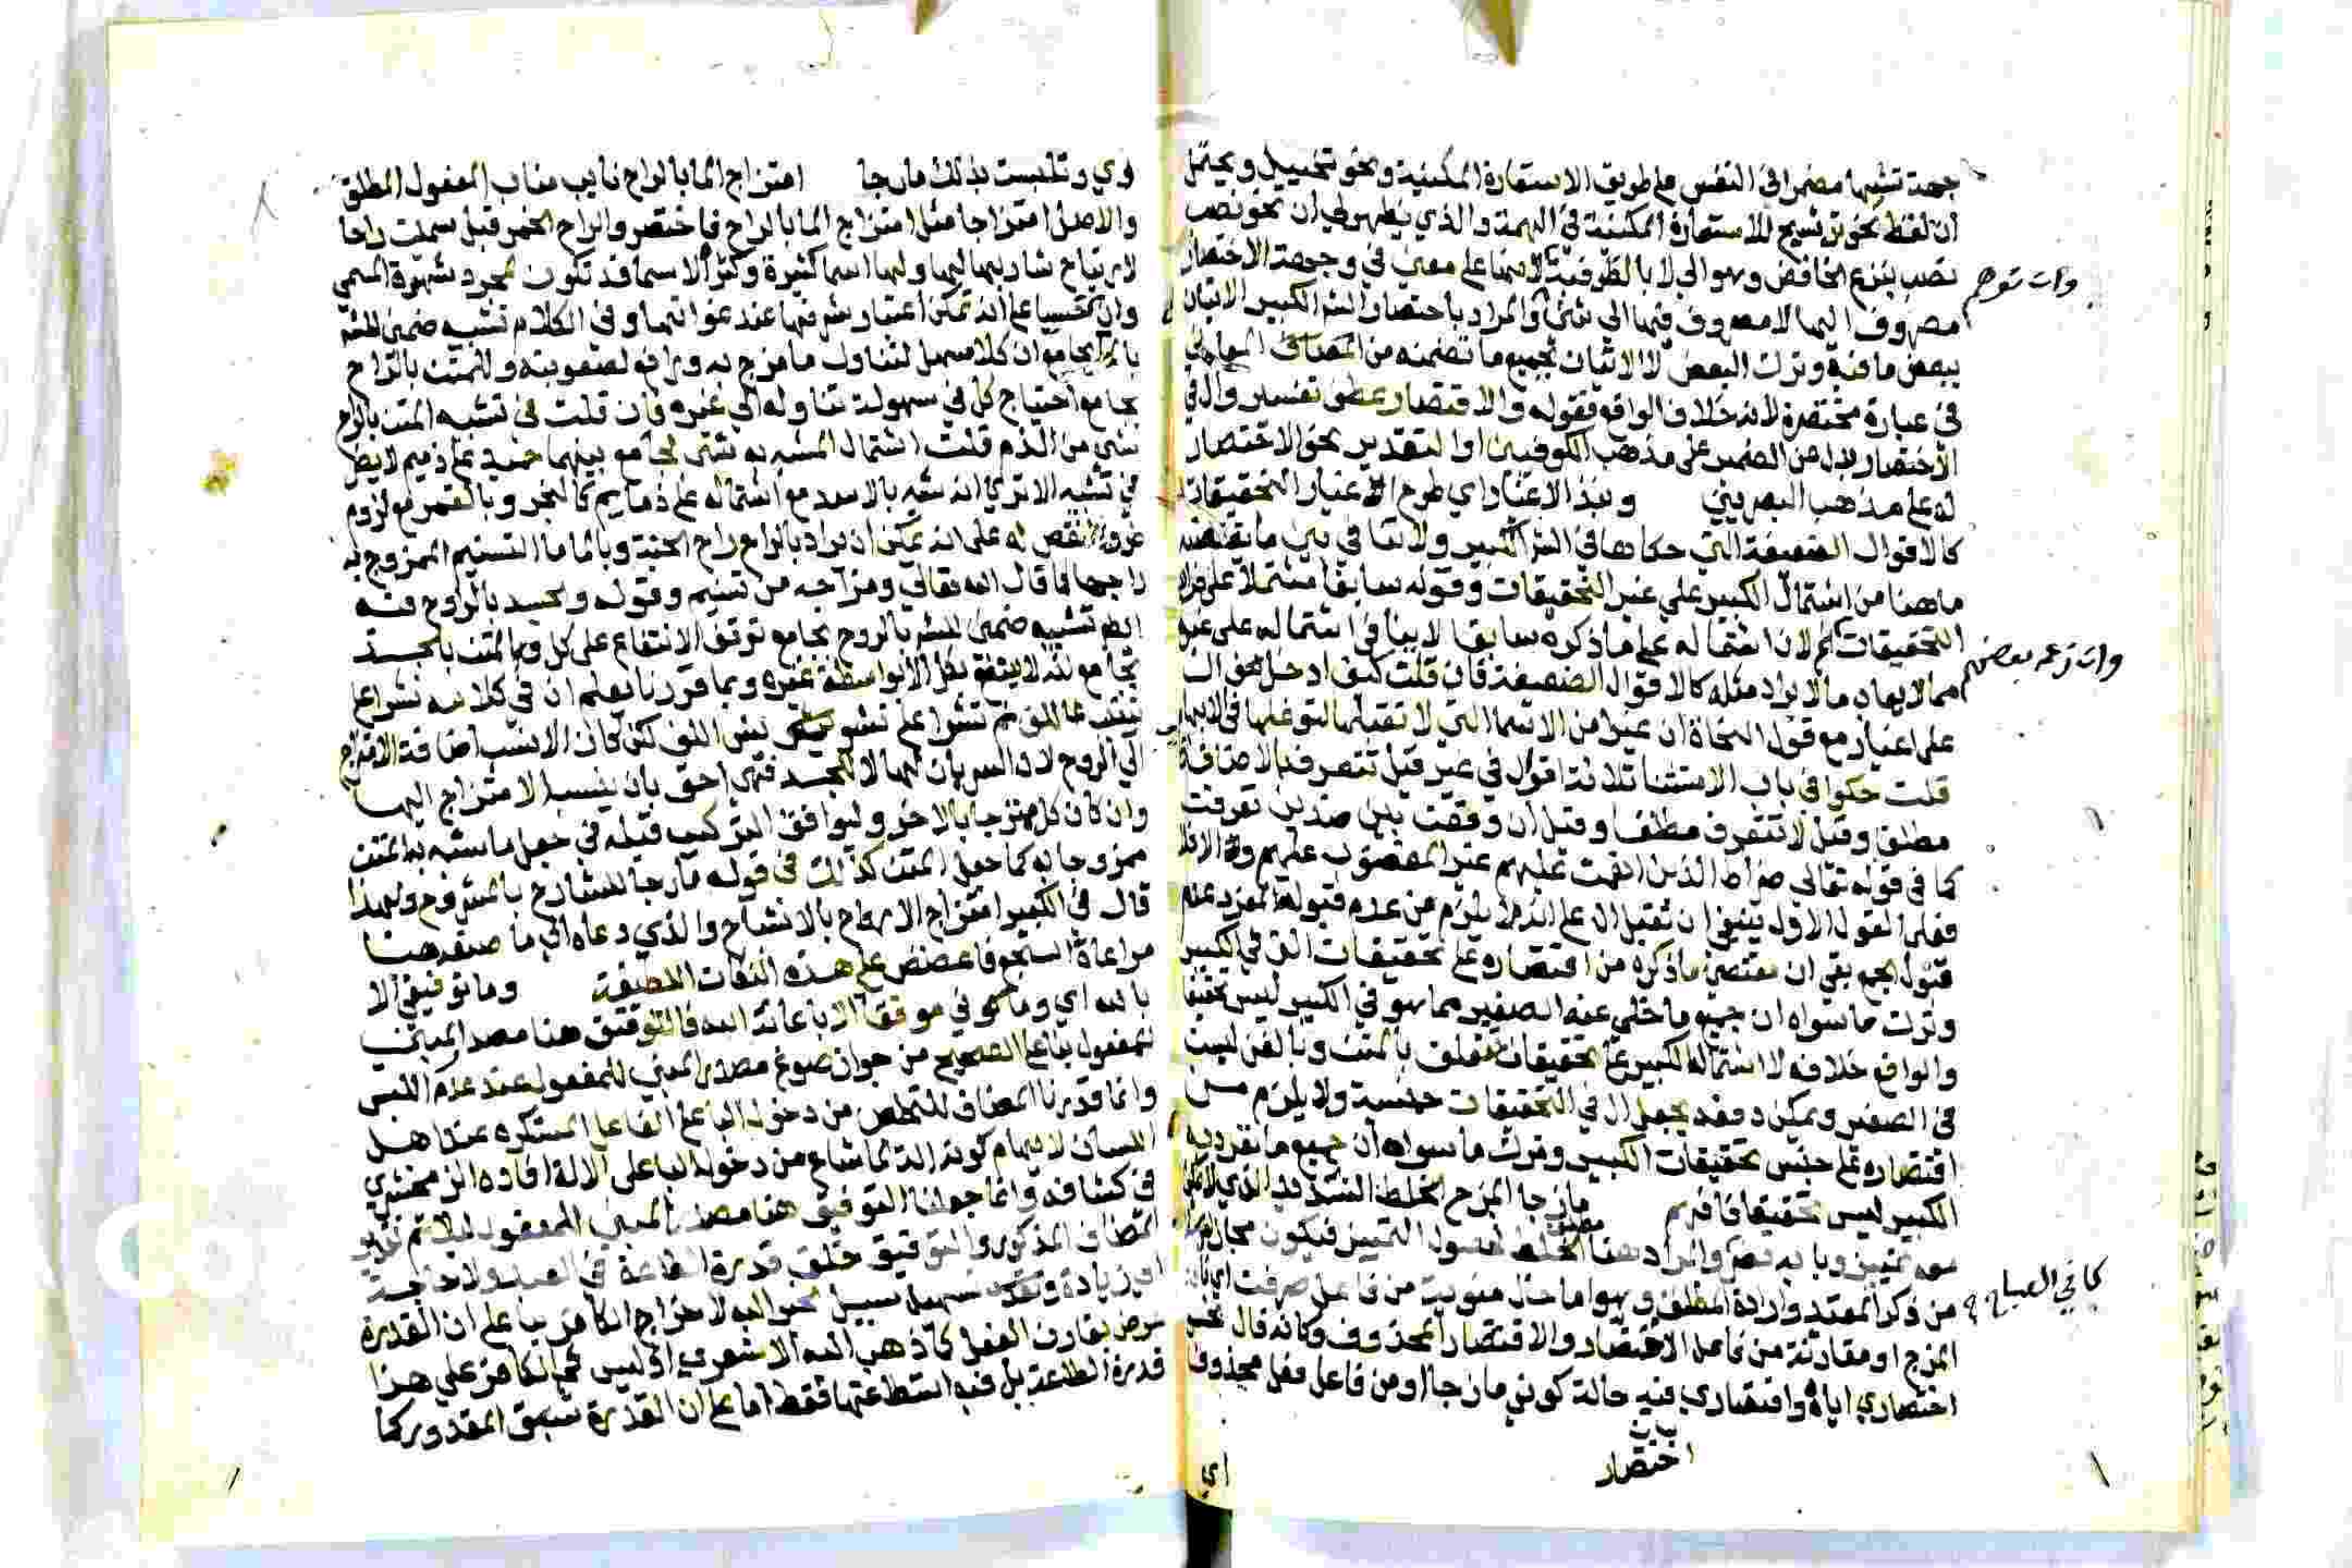 جهة تشبيهها مضمرا في النفس على طريق الاستعارة المكنية ونحو تخييل ويحتمل
ان لفظ نحو ترشيح للاستعارة المكنية في البهمة والذي يظهر لي ان نحو نصب
نصب بنزع الخافض وهو الى لا بالظرفية لانها على معنى في وجهة الاختصار
وان توهم
مصروف اليها لا مصروف فيها الى شئ والمراد باختصار الشرح الكبير الاتيان
ببعض ما فيه وترك البعض لا الاتيان بجميع ما تضمنه من المعاني
في عبارة مختصرة لانه خلاف الواقع فقوله والاقتصار عطف تفسير وال في
الاختصار بدل عن الضمير على مذهب الكوفيين او التقدير نحو الاختصار
له على مذهب البصريين ونبذ الاغيار اي طرح الاغيار التحقيقات
كالاقوال الضعيفة التي حكاها في الشرح الكبير ولا تنافي بين ما يقتضيه
ما هنا من اشتمال الكبير على غير التحقيقات وقوله سابقا مشتملا على
التحقيقات لان اشتماله على ما ذكره سابقا لا ينافي اشتماله على غيره
وان زعمه بعضهم
مما لايهام ما لا يراد مثله كالاقوال الضعيفة فان قلت كيف ادخل ال
على اغيار مع قول النحاة ان غيرا من الاسما التي لا تقبلها لتوغلها في الابهام
قلت حكوا في باب الاستثنا ثلاثة اقوال في غير قيل تتعرف بالاضافة
مطلقا وقيل لا تتعرف مطلقا وقيل ان وقعت بين ضدين تعرفت
كما في قوله تعالى صراط الذين انعمت عليهم غير المغضوب عليهم والا فلا
فعلى القول الاول ينبغي ان تقبل ال على انه لا يلزم من عدم قبول المفرد عدم
قبول الجمع بقي ان مقتضى ما ذكره من اقتصاره على تحقيقات التي في الكبير
وترك ما سواه ان جميع ما خلى عنه الصغير مما هو في الكبير ليس تحقيقا
والواقع خلافه لاشتمال الكبير على تحقيقات تتعلق بالمتن وبالفن ليست
في الصغير ويمكن دفعه بجعل ال في التحقيقات جنسية ولا يلزم من
اقتصاره على جنس تحقيقات الكبير وترك ما سواه ان جميع ما تفرد به
الكبير ليس تحقيقا فافهم مازجا المزج الخلط الشديد الذي لا يمكن
معه تمييز وبابه نصر والمراد هنا الخلط مطلق لحصول التمييز فيكون مجازا
كما في الصباح
من ذكر المقيد وارادة المطلق وهو اما حال منوية من فاعل صرفت اي
المزج او مقارنة من فاعل الاختصار والاقتصار المحذوف وكانه قال نحو
اختصاري اياه واقتصاري فيه حالة كوني مازجا او من فاعل فعل محذوف
اختصار
اي
وي وتلبست بذلك مازجا امتزاج الما بالراح نايب مناب المفعول المطلق
والاصل امتزاجا مثل امتزاج الما بالراح فاختصر والراح الخمر قيل سميت راحا
لارتياح شاربها اليها ولها اسما كثيرة وكثرة الاسما قد تكون لمجرد شهرة المسمى
وان خسيسا على انه يمكن اعتبار شرفها عند غواتها وفي الكلام تشبيه ضمني للشرح
بالما بجامع ان كلا سهل لتناول ما مزج به ورافع لصعوبته وللمتن بالراح
بجامع احتياج كل في سهولة تناوله الى غيره فان قلت في تشبيه المتن بالراح
شئ من الذم قلت اشتمال المشبه به شئ لجامع بينهما حميد على ذميم لا يضر
في تشبيه الا ترى انه شبه بالاسد مع اشتماله على ذمايم كالبخر وبالقمر مع لزوم
عروض النقص له على انه يمكن ان يراد بالراح راح الجنة وبالما ما التسنيم الممزوج به
راحها كما قال الله تعالى ومزاجه من تسنيم وقوله والجسد بالروح فيه
ايضا تشبيه ضمني للشرح بالروح بجامع توقف الانتفاع على كل وللمتن بالجسد
بجامع انه لا ينتفع بكل الا بواسطة غيره وبما قررنا يعلم ان في كلامه نشرا على
الى الروح لان السريان لها لا للجسد فهي احق بان ينسب الامتزاج اليها
وان كان كل ممتزجا بالاخر وليوافق التركيب قبله في جعل ما شبه به المتن
ممزوجا به كما جعل المتن كذلك في قوله مازجا للشارح بالمشروح ولهذا
قال في الكبير امتزاج الارواح بالاشباح والذي دعاه الى ما صنعه هنا
مراعاة السجع فاعضض على هذه النكات اللطيفة وما توفيقي الا
بالله اي وما كوني موفقا الا باعانة الله فالتوفيق هنا مصدر المبني
للمفعول بنا على الصحيح من جواز صوغ مصدر المبني للمفعول عند عدم اللبس
وانما قدرنا المضاف للتخلص من دخول البا على الفاعل المستكره عند اهل
اللسان لايهام كونه الة لما شاع من دخول البا على الالة افاده الزمخشري
في كشافه وانما جعلنا التوفيق هنا مصدر المبني للمفعول ليلائم تقدير
المضاف المذكور والتوفيق خلق قدرة الطاعة في العبد ولا حاجة
الى زيادة وتسهيل سبيل الخير اليه لاخراج الكافر بنا على ان القدرة
عرض يقارن الفعل كما ذهب اليه الاشعري اذ ليس في الكافر على هذا
قدرة الطاعة بل فيه استطاعتها فقط اما على ان القدرة تسبق المقدور كما